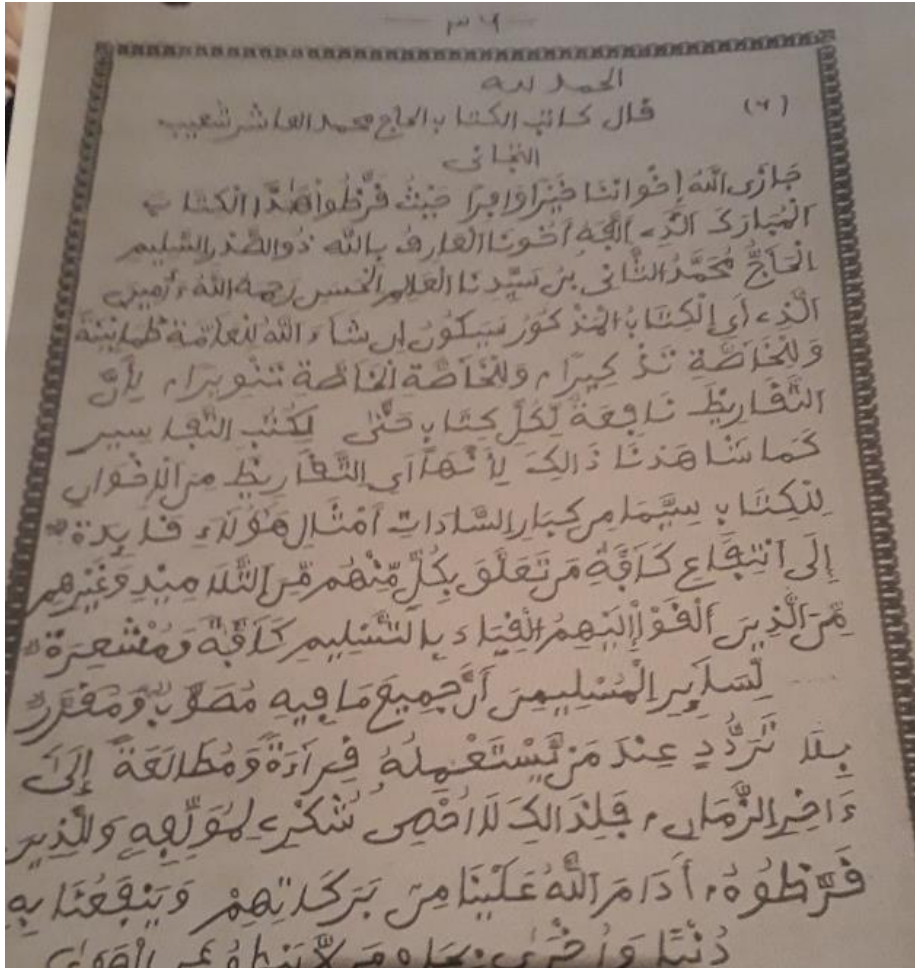 ٣٦
الحمد لله
(٦) قال كاتب الكتاب الحاج محمد العاشر شعيب
التجاني
جَازَى اللَّهُ إِخْوَانَنَا خَيْرًا وَافِرًا حَيْثُ قَرَّظُوا هَٰذَا الْكِتَابَ
الْمُبَارَكَ الَّذِي أَلَّفَهُ أَخُونَا الْعَارِفُ بِاللَّهِ ذُو الصَّدْرِ السَّلِيمِ
الْحَاجُّ مُحَمَّدُ الثَّانِي بْنِ سَيِّدِنَا الْعَالِمِ الْحَسَنِ رحمه الله ءامين
الَّذِي أَيِ الْكِتَابُ الْمَذْكُورُ سَيَكُونُ إِن شَاءَ اللَّهُ لِلْعَامَّةِ طُمَانِينَةً
وَلِلْخَاصَّةِ تَذْكِيرًا، وَلِلْخَاصَّةِ الْخَاصَّةِ تَنْوِيرًا، لِأَنَّ
التَّقَارِيظَ نَافِعَةٌ لِكُلِّ كِتَابٍ حَتَّىٰ لِكُتُبِ التَّفَاسِيرِ
كَمَا شَاهَدْنَا ذَالِكَ لِأَنَّهَا أَيِ التَّقَارِيظِ مِنَ الْإِخْوَانِ
لِلْكِتَابِ سِيَّمَا مِن كِبَارِ السَّادَاتِ أَمْثَالِ هَٰؤُلَاءِ فَايِدَةٌ
إِلَى انْتِفَاعِ كَافَّةِ مَن تَعَلَّقَ بِكُلٍّ مِّنْهُم مِّنَ التَّلَامِيذِ وَغَيْرِهِم
مِّنَ الَّذِينَ أَلْقَوْا إِلَيْهِمُ الْقِيَادَ بِالتَّسْلِيمِ كَافَّةً وَمُشْعِرَةٌ
لِسَايِرِ الْمُسْلِمِينَ أَنَّ جَمِيعَ مَا فِيهِ مُصَوَّبٌ وَمُقَرَّرٌ
بِلَا تَرَدُّدٍ عِندَ مَن يَسْتَعْمِلُهُ قِرَاءَةً وَمُطَالَعَةً إِلَىٰ
ءَاخِرِ الزَّمَانِ، فَلِذَالِكَ لَا أُحْصِي شُكْرِي لِمُؤَلِّفِهِ وَلِلَّذِينَ
قَرَّظُوهُ، أَدَامَ اللَّهُ عَلَيْنَا مِن بَرَكَاتِهِمْ وَيَنْفَعُنَا بِهِ
دُنْيَا وَأُخْرَىٰ بِجَاهِ مَن لَّا يَنطِقُ عَنِ الْهَوَىٰ